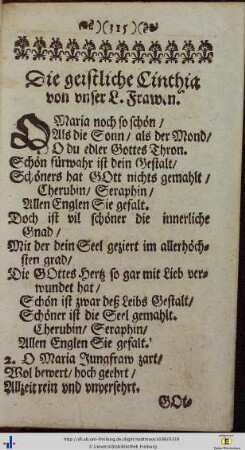 (315)
Die geistliche Cinthia
von vnser L. Frawen.
O Maria noch so schön /
Als die Sonn / als der Mond /
O du edler Gottes Thron.
Schön fürwahr ist dein Gestalt /
Schöners hat GOtt nichts gemahlt /
Cherubin / Seraphin /
Allen Englen Sie gefalt.
Doch ist vil schöner die innerliche
Gnad /
Mit der dein Seel geziert im allerhöch-
sten grad /
Die GOttes Hertz so gar mit Lieb ver-
wundet hat /
Schön ist zwar deß Leibs Gestalt /
Schöner ist die Seel gemahlt.
Cherubin / Seraphin /
Allen Englen Sie gefalt.
2. O Maria Jungfraw zart /
Wol bewert / hoch geehrt /
Allzeit rein vnd vnversehrt.
GOt-
© Universitätsbibliothek Freiburg